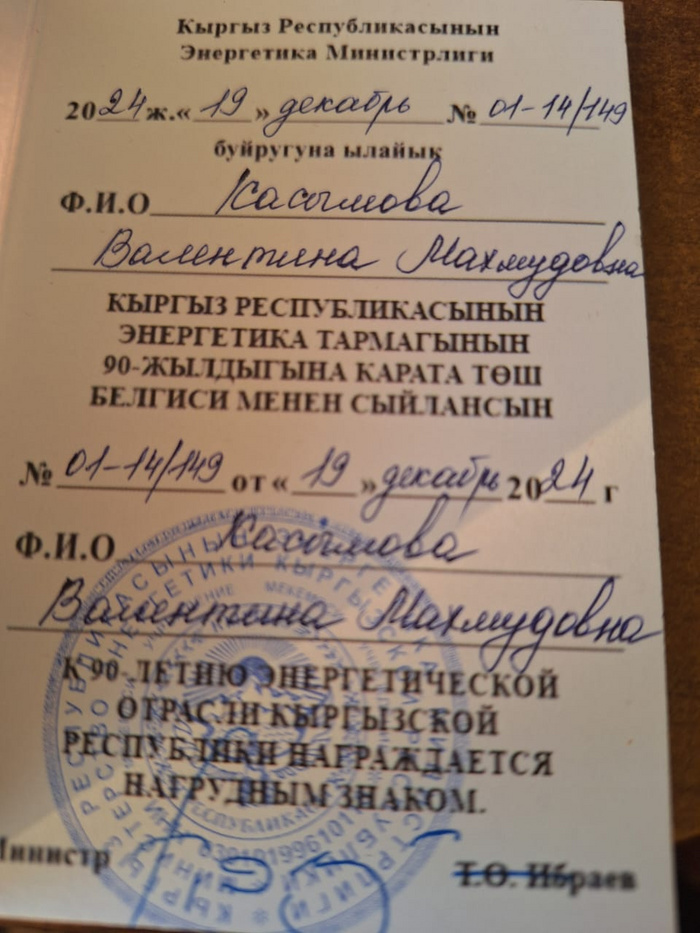 Кыргыз Республикасынын
Энергетика Министрлиги
2024 ж. «19» декабрь № 01-14/149
буйругуна ылайык
Ф.И.О Касымова
Валентина Махмудовна
КЫРГЫЗ РЕСПУБЛИКАСЫНЫН
ЭНЕРГЕТИКА ТАРМАГЫНЫН
90-ЖЫЛДЫГЫНА КАРАТА ТӨШ
БЕЛГИСИ МЕНЕН СЫЙЛАНСЫН
№ 01-14/149 от «19» декабрь 2024 г
Ф.И.О Касымова
Валентина Махмудовна
К 90-ЛЕТИЮ ЭНЕРГЕТИЧЕСКОЙ
ОТРАСЛИ КЫРГЫЗСКОЙ
РЕСПУБЛИКИ НАГРАЖДАЕТСЯ
НАГРУДНЫМ ЗНАКОМ.
Министр Т.О. Ибраев